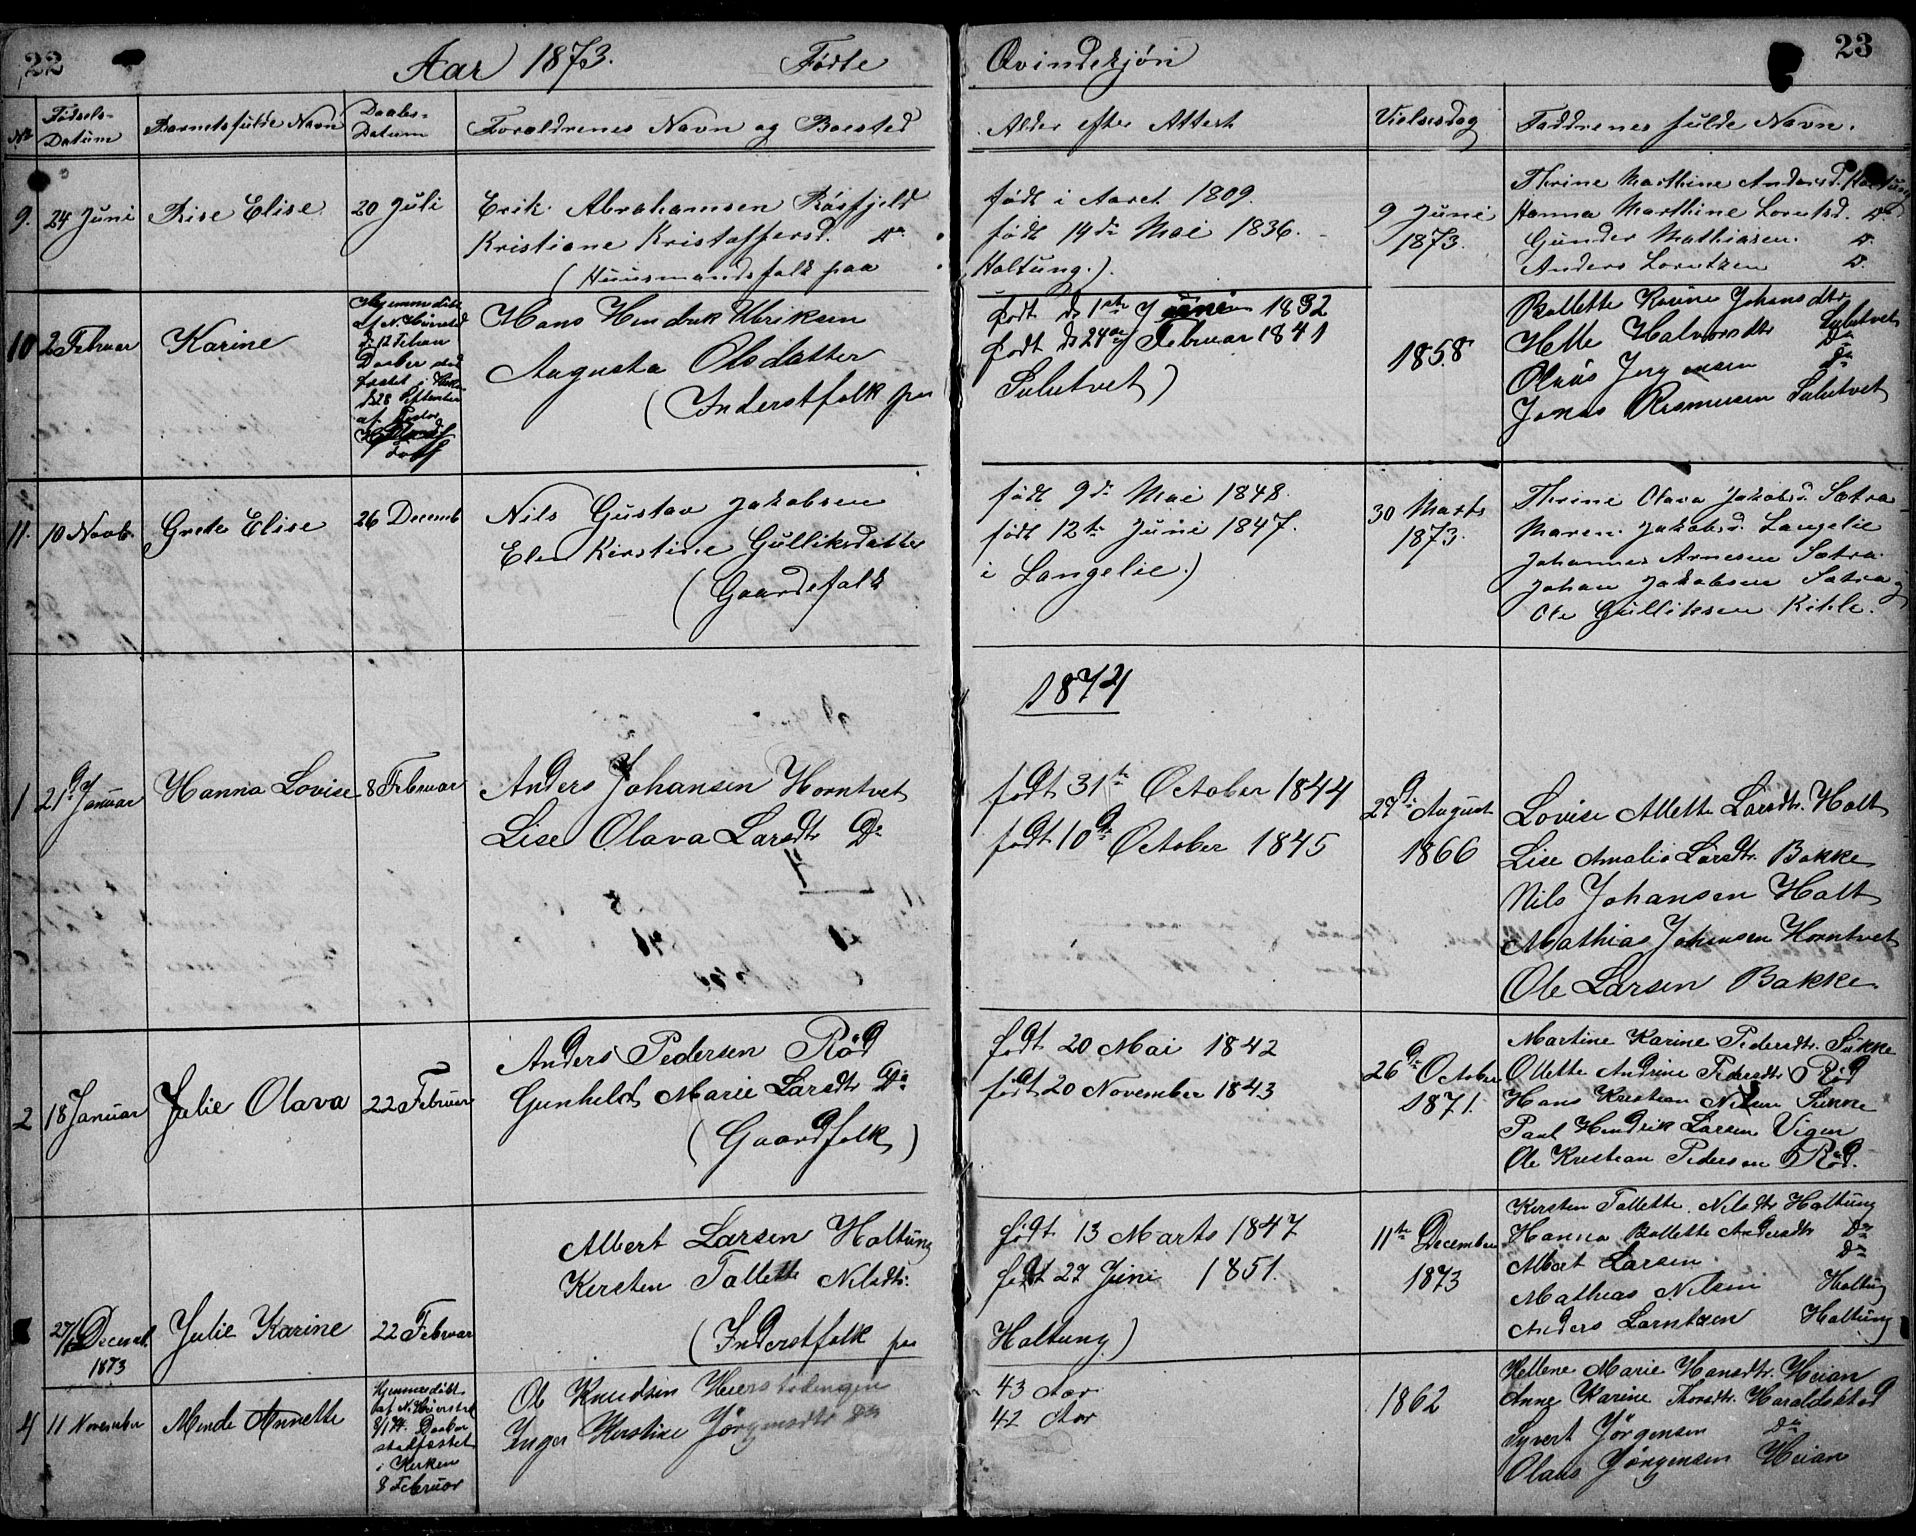 22
Aar 1873. Fødte
Qvindekjøn
23
No
Fødsels-
Datum
Barnets fulde Navn
Daabs-
Datum
Forældrenes Navn og Bosted
Alder efter Attest
Vielsesdag
Faddrenes fulde Navn.
9.
24 Juni
Elise
20 Juli
Erik Abrahamsen Røsfjeld
Kristiane Kristoffersd. Do
(Huusmandsfolk paa
født i Aaret 1809.
født 14de Mai 1836.
Holtung.)
9 Juni
1873.
Thrine Marthine Andersd. Holtung
Hanna Marthine Lorntsd. Do
Gunder Mathiasen. D.
Anders Lorntzen D.
10
2 Februar
Karine
Hjemmedøbt
af N. Høiersted
Daaben stad
fæstet i Kirken
d 28 September
af Pastor
Hans Hendrik Ulriksen
Augusta Olsdatter
(Inderstfolk paa
født d 1ste Juni 1832
født d 24de Februar 1841
Sulutvet)
1858
Bollette Karine Johansdtr
Helle Halvorsdtr Sulutvet
Olaus Jørgensen Do
Jonas Rasmusen Sulutvet
11.
10 Novb.
Grete Elise
26 Decemb
Nils Gustav Jakobsen
Elen Kirstine Gulliksdatter
(Gaardefolk
født 9de Mai 1848.
født 12te Juni 1847.
i Langelie.)
30 Marts
1873.
Thrine Olava Jakobsd. Sætra
Maren Jakobsd. Langelie
Johannes Arnesen Sætra
Johan Jakobsen Sætra og
Ole Gulliksen Kihle.
1874
1
21de Januar
Hanna Lovise
8 Februar
Anders Johansen Horntvet
Lise Olava Larsdtr Do
født 31te October 1844
født 10de October 1845
27de August
1866
Lovise Allette Larsdtr. Holt
Lise Amalie Larsdtr. Bakke
Nils Johansen Holt
Mathias Johansen Horntvet
Ole Larsen Bakke
2
18 Januar
Julie Olava
22 Februar
Anders Pedersen Rød
Gunhild Marie Larsdtr Do
(Gaardfolk)
født 20 Mai 1842
født 20 November 1843
26de October
1871.
Martine Karine Pedersdtr. Sukke
Ollette Andrine Pedersdtr Rød
Hans Kristian Nilsen Sukke
Paul Hendrik Larsen Vigen
Ole Kristian Pedersen Rød.
27/ Decemb.
1873
Julie Karine
22 Februar
Albert Larsen Holtung
Kersten Tallette Nilsdtr.
(Inderstfolk paa
født 13 Marts 1847
født 27 Juni 1851.
Holtung)
11te December
1873
Kersten Tallette Nilsdtr Holtung
Hanna Bollette Andersdtr Do
Albert Larsen Do
Mathias Nilsen Holtung
Anders Larntzen Holtung
4
11 November
Annette
Hjemmedøbt
af N. Høiersted
Daaben
stadfæstet
i Kirken
8 Februar
Ole Knudsen Heierstadengen
Inger Kerstine Jørgensdtr Do
43 Aar
42 Aar
1862
Hellene Marie Hansdtr. Heian
Anne Karine Haraldsstad
Syvert Jørgensen Do
Olaus Jørgensen Heian